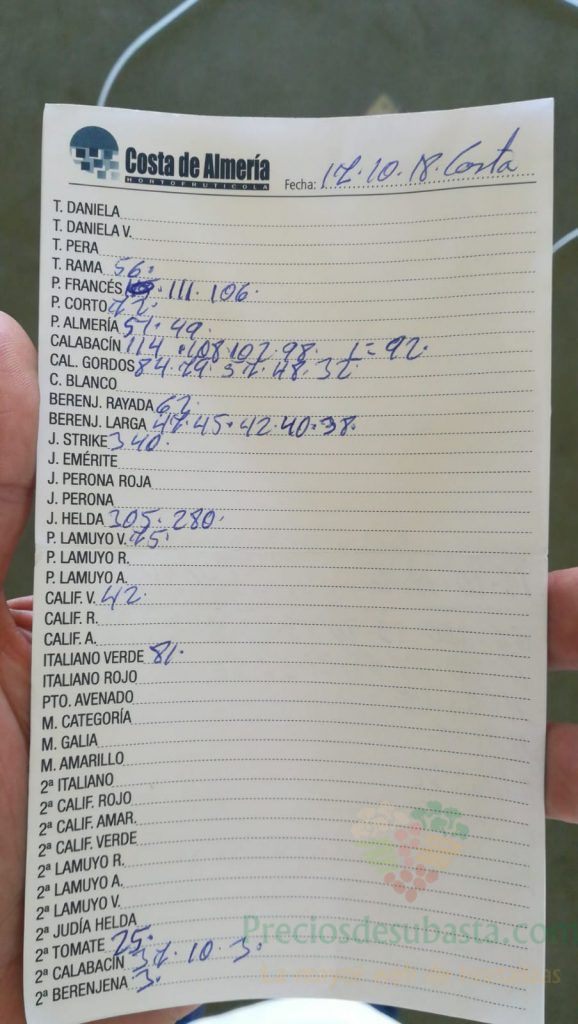 Costa de Almería
HORTOFRUTICOLA
Fecha: 17.10.18. Costa
T. DANIELA
T. DANIELA V.
T. PERA
T. RAMA 56.
P. FRANCÉS 111. 106.
P. CORTO 72.
P. ALMERÍA 51. 49.
CALABACÍN 114 . 108. 102. 98. t = 92.
CAL. GORDOS 84. 79. 57. 48. 37
C. BLANCO
BERENJ. RAYADA 67.
BERENJ. LARGA 47. 45. 42. 40. 38.
J. STRIKE 340.
J. EMÉRITE
J. PERONA ROJA
J. PERONA
J. HELDA 305. 280.
P. LAMUYO V. 75.
P. LAMUYO R.
P. LAMUYO A.
CALIF. V. 42.
CALIF. R.
CALIF. A.
ITALIANO VERDE 81.
ITALIANO ROJO
PTO. AVENADO
M. CATEGORÍA
M. GALIA
M. AMARILLO
2ª ITALIANO
2ª CALIF. ROJO
2ª CALIF. AMAR.
2ª CALIF. VERDE
2ª LAMUYO R.
2ª LAMUYO A.
2ª LAMUYO V.
2ª JUDÍA HELDA
2ª TOMATE 25.
2ª CALABACÍN 37. 10. 3.
2ª BERENJENA 3.
Preciosdesubasta.com